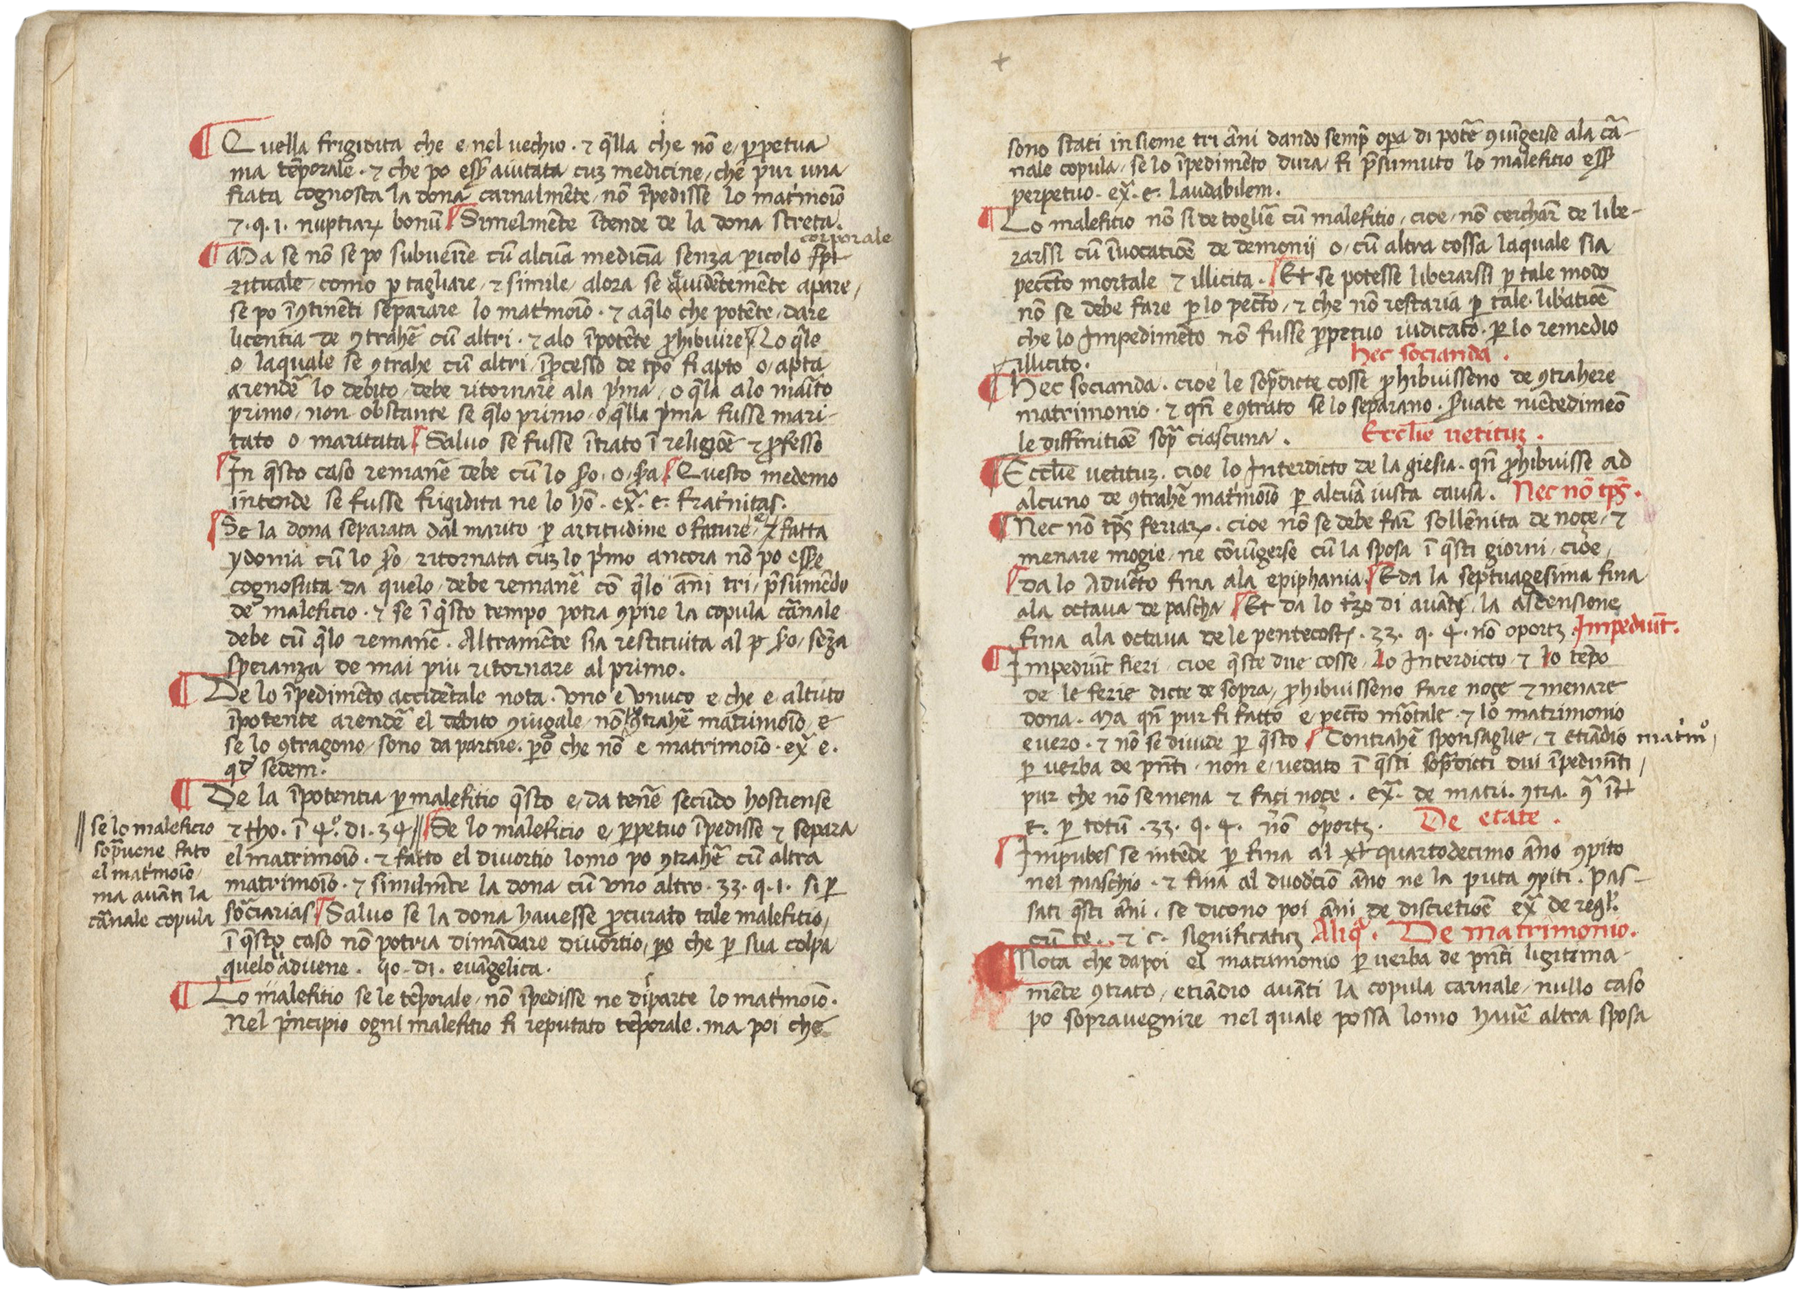 Quella frigidita che e nel vechio · ⁊ q̄lla che nō e ꝑpetua
ma tēporale · ⁊ che po ess̄ aiutata cuz medicine, che pur una
fiata cognosca la dona carnalmēte, nō īpedisse lo mat'moīo
27 · q · 1 · nuptiaꝝ bonū Simelmēte ītende de la dona streta.
corporale
Ma se nō se po subuenire cū alcūa medicīa senza ꝑicolo spi-
rituale, como ꝑ tagliare, ⁊ simile, alora se evidētemēte apare,
se po īꝯtinēti separare lo mat'moīo · ⁊ aq̄lo che potēte, dare
licentia de ꝯtrahē cū altri · ⁊ alo īpotēte ꝓhibuire Lo q̄le
o laquale se ꝯtrahe cū altri, īpcesso de tp̄o fi apto o, apta
arendē lo debito, debe ritornare ala p'ma, o q̄la alo maīto
primo, non obstante se q̄lo primo, o q̄lla p'ma fusse mari-
tato o maritata Saluo se fusse ītrato ī religiōe ⁊ ꝓfesso
In q̄sto caso remanē debe cū lo s̄o, o, s̄a Questo medemo
intende se fusse frigidita ne lo hō · ex̄ · e · fraťnitas.
Se la dona separata dal marito ꝑ artitudine o fature, e fatta
ydonia cū lo s̄o, ritornata cuz lo p'mo ancora nō po esse
cognosuta da quelo, debe remanē cō q̄lo āni tri, p̄sumēdo
de maleficio · ⁊ se ī q̄sto tempo potra ꝯpire la copula carnale
debe cū q̄lo remanē. Altramēte sia restituita al p s̄o, senza
speranza de mai piu ritornare al primo.
De lo īpedimēto accidētale nota · Uno e unuco e che e, altuto
īpotente arendē el debito ꝯiugale, nō ꝯtrahē matrimoīo, e
se lo ꝯtragono, sono da partire. ꝑo che nō e matrimoīo · ex̄ e.
q̄d sedem.
De la īpotentia ꝑ malefitio q̄sto e, da tenē secūdo hostiense
⁊ tho · ī 4º · di · 34 Se lo maleficio e ꝑpetuo īpedisse ⁊ separa
se lo maleficio
sop̄uene fato
el mat'moīo,
ma auāti la
carnale copula
el matrimoīo · ⁊ fatto el divortio lomo po ꝯtrahē cū altra
matrimoīo · ⁊ similmēte la dona cū uno altro · 33 · q · 1 · si ꝑ
sorciarias Saluo se la dona havesse ꝓcurato tale malefitio,
ī q̄sto caso nō potria dimādare divortio, ꝑo che ꝑ sua colpa
quelo aduene · 40 · di · euāgelica.
Lo malefitio se le tēporale, nō īpedisse ne diparte lo mat'moīo.
Nel p'ncipio ogni malefitio fi reputato tēporale · ma poi che
sono stati insieme tri āni dando semp̄ oꝑa di potē ꝯiūgerse ala ca-
nale copula, se lo īpedimēto dura, fi p̄sumuto lo maleficio ess̄
perpetuo · ex̄ · e · Laudabilem.
Lo maleficio nō si de togliē cū malefitio, cioe, nō cerchar̄ de libe-
rarssi cū īuocatiōe de demonij o, cū altra cossa laquale sia
peccto mortale ⁊ illicita. Et se potesse liberarssi ꝑ tale modo
nō se debe fare ꝑ lo pecto, ⁊ che nō restaria ꝑ tale lib'atiōe
che lo Impedimēto nō fusse ꝑpetuo iudicato ꝑ lo remedio
illicito. hec socianda.
Hec socianda · cioe le sop̄dicte cosse ꝓhibuisseno de ꝯtrahere
matrimonio · ⁊ qn̄ e ꝯtrato se lo separano. Suate
le diffinitiōe sop̄ ciascuna. Ecclīe vetituz.
Ecclīe vetituz · cioe lo Interdicto de la giesia · qn̄ ꝓhibuisse ad
alcuno de ꝯtrahē mat'moīo ꝑ alcūa iusta causa. Nec nō tp̄s.
Nec nō tp̄s feriaꝝ · cioe nō se debe far̄ sollēnita de noçe, ⁊
menare mogie, ne cōiūgerse cū la sposa ī q̄sti giorni, cioe,
da lo Aduēto fina ala epiphania Eda la septuagesima fina
ala octaua de pascha Et da lo t'zo di auāti, la ascensione
fina ala octaua de le pentecoste · 33 · q · 4 · nō oportz. Impediūt.
Impediūt fieri, cioe q̄ste due cosse, Lo Interdicto, ⁊ lo tēpo
de le ferie dicte de sopra, ꝓhibuisseno fare noçe ⁊ menare
dona · Ma qn̄ pur fi fatto e, pecto mōtale · ⁊ lo matrimonio
e uero · ⁊ nō se divide ꝑ q̄sto Contrahē sponsaglie, ⁊ etiādio mat'mº,
ꝑ uerba de p̄nti, non e, uedato ī q̄sti sop̄dicti dui īpedimēti,
pur che nō se mena ⁊ faci noçe. ex̄. de matri. ꝯtra. ꝯ̄ īt
e. ꝑ totū · 33 · q · 4 · nō oportz. De etate.
Impubes se intēde ꝑ fina al quartodecimo āno ꝯpito
nel maschio · ⁊ fina al duodeciō āno ne la puta ꝯpiti. Pas-
sati q̄sti āni, se dicono poi āni de discretiōe ex̄ de regl.
cū te. ⁊ c. significatuz Aliq̄. De matrimonio.
Nota che dapoi el matrimonio ꝑ uerba de p̄nti ligitima-
mēte ꝯtrato, etiādio auāti la copula carnale, nullo caso
po sopravegnire nel quale possa lomo havē altra sposa